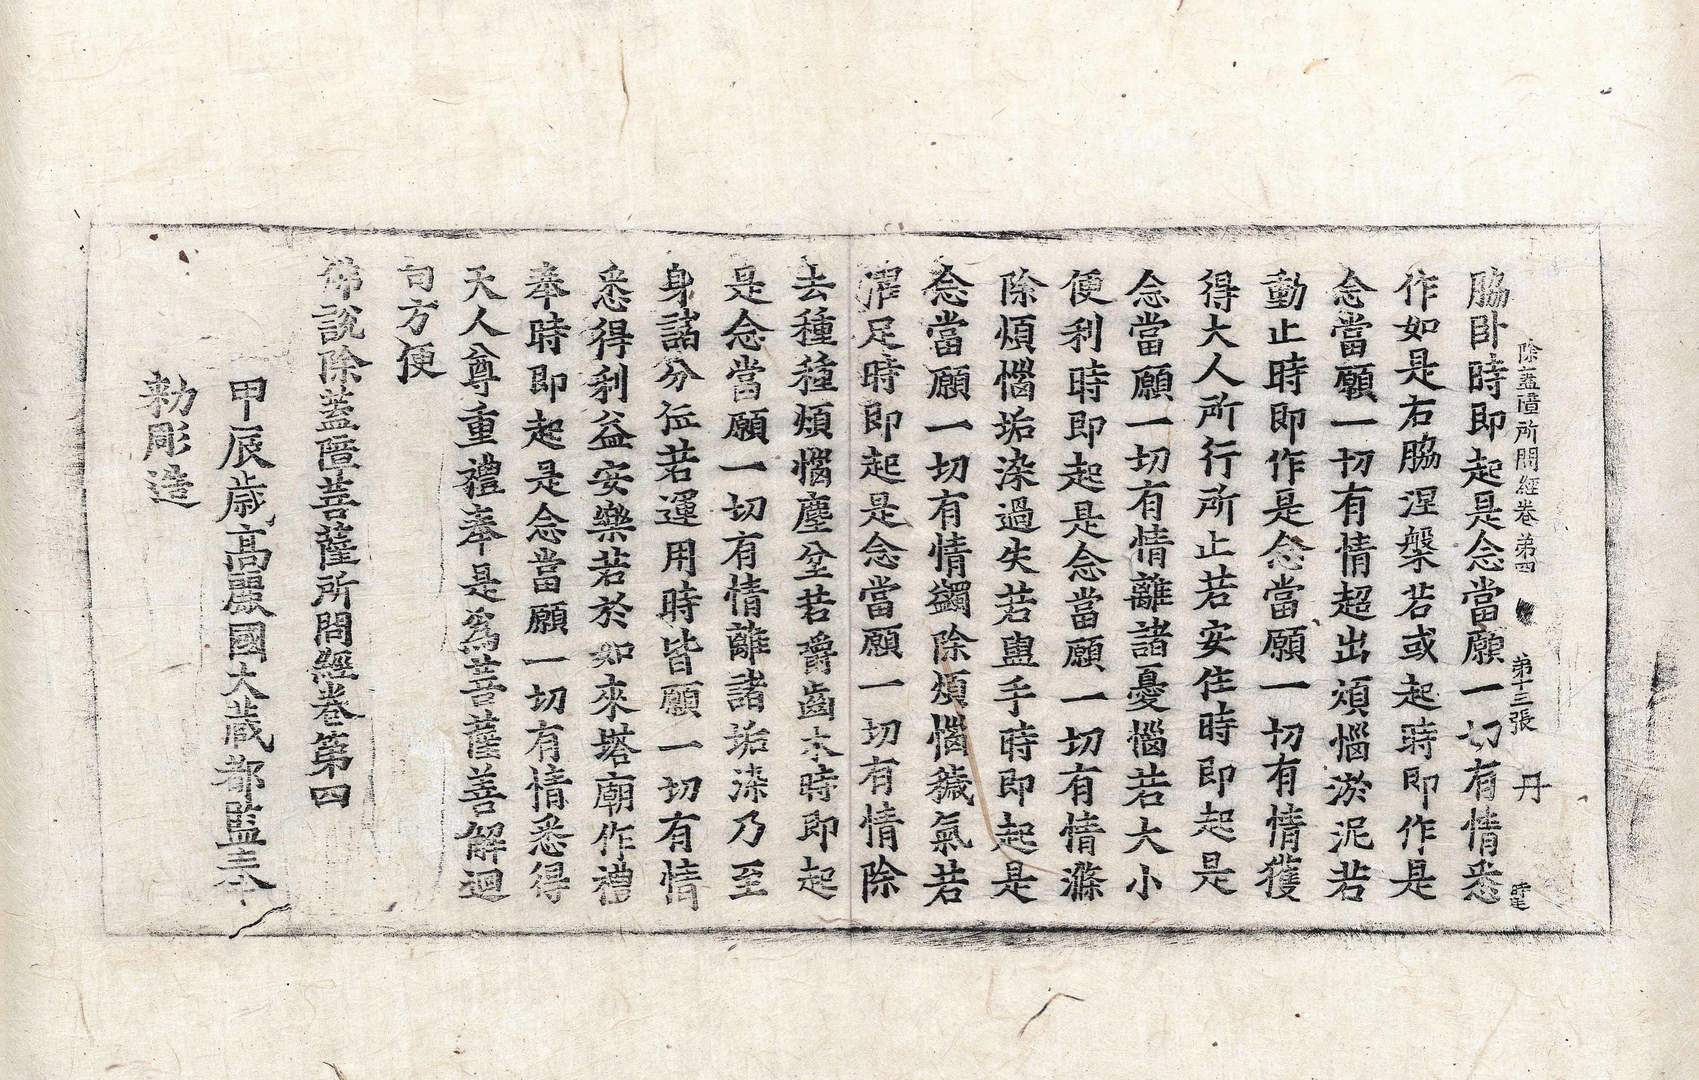 除蓋障所問經卷第四 第十三張 丹
脇卧時即起是念當願一切有情悉
作如是右脇涅槃若或起時即作是
念當願一切有情超出煩惱淤泥若
動止時即作是念當願一切有情獲
得大人所行所止若安住時即起是
念當願一切有情離諸憂惱若大小
便利時即起是念當願一切有情滌
除煩惱垢染過失若盥手時即起是
念當願一切有情蠲除煩惱穢氣若
濯足時即起是念當願一切有情除
去種種煩惱塵坌若嚼齒木時即起
是念當願一切有情離諸垢染乃至
身諸分位若運用時皆願一切有情
悉得利益安樂若於如來塔廟作禮
奉時即起是念當願一切有情悉得
天人尊重禮奉是爲菩薩善解迴
向方便
佛說除蓋障菩薩所問經卷第四
甲辰歲高麗國大藏都監奉
勅彫造